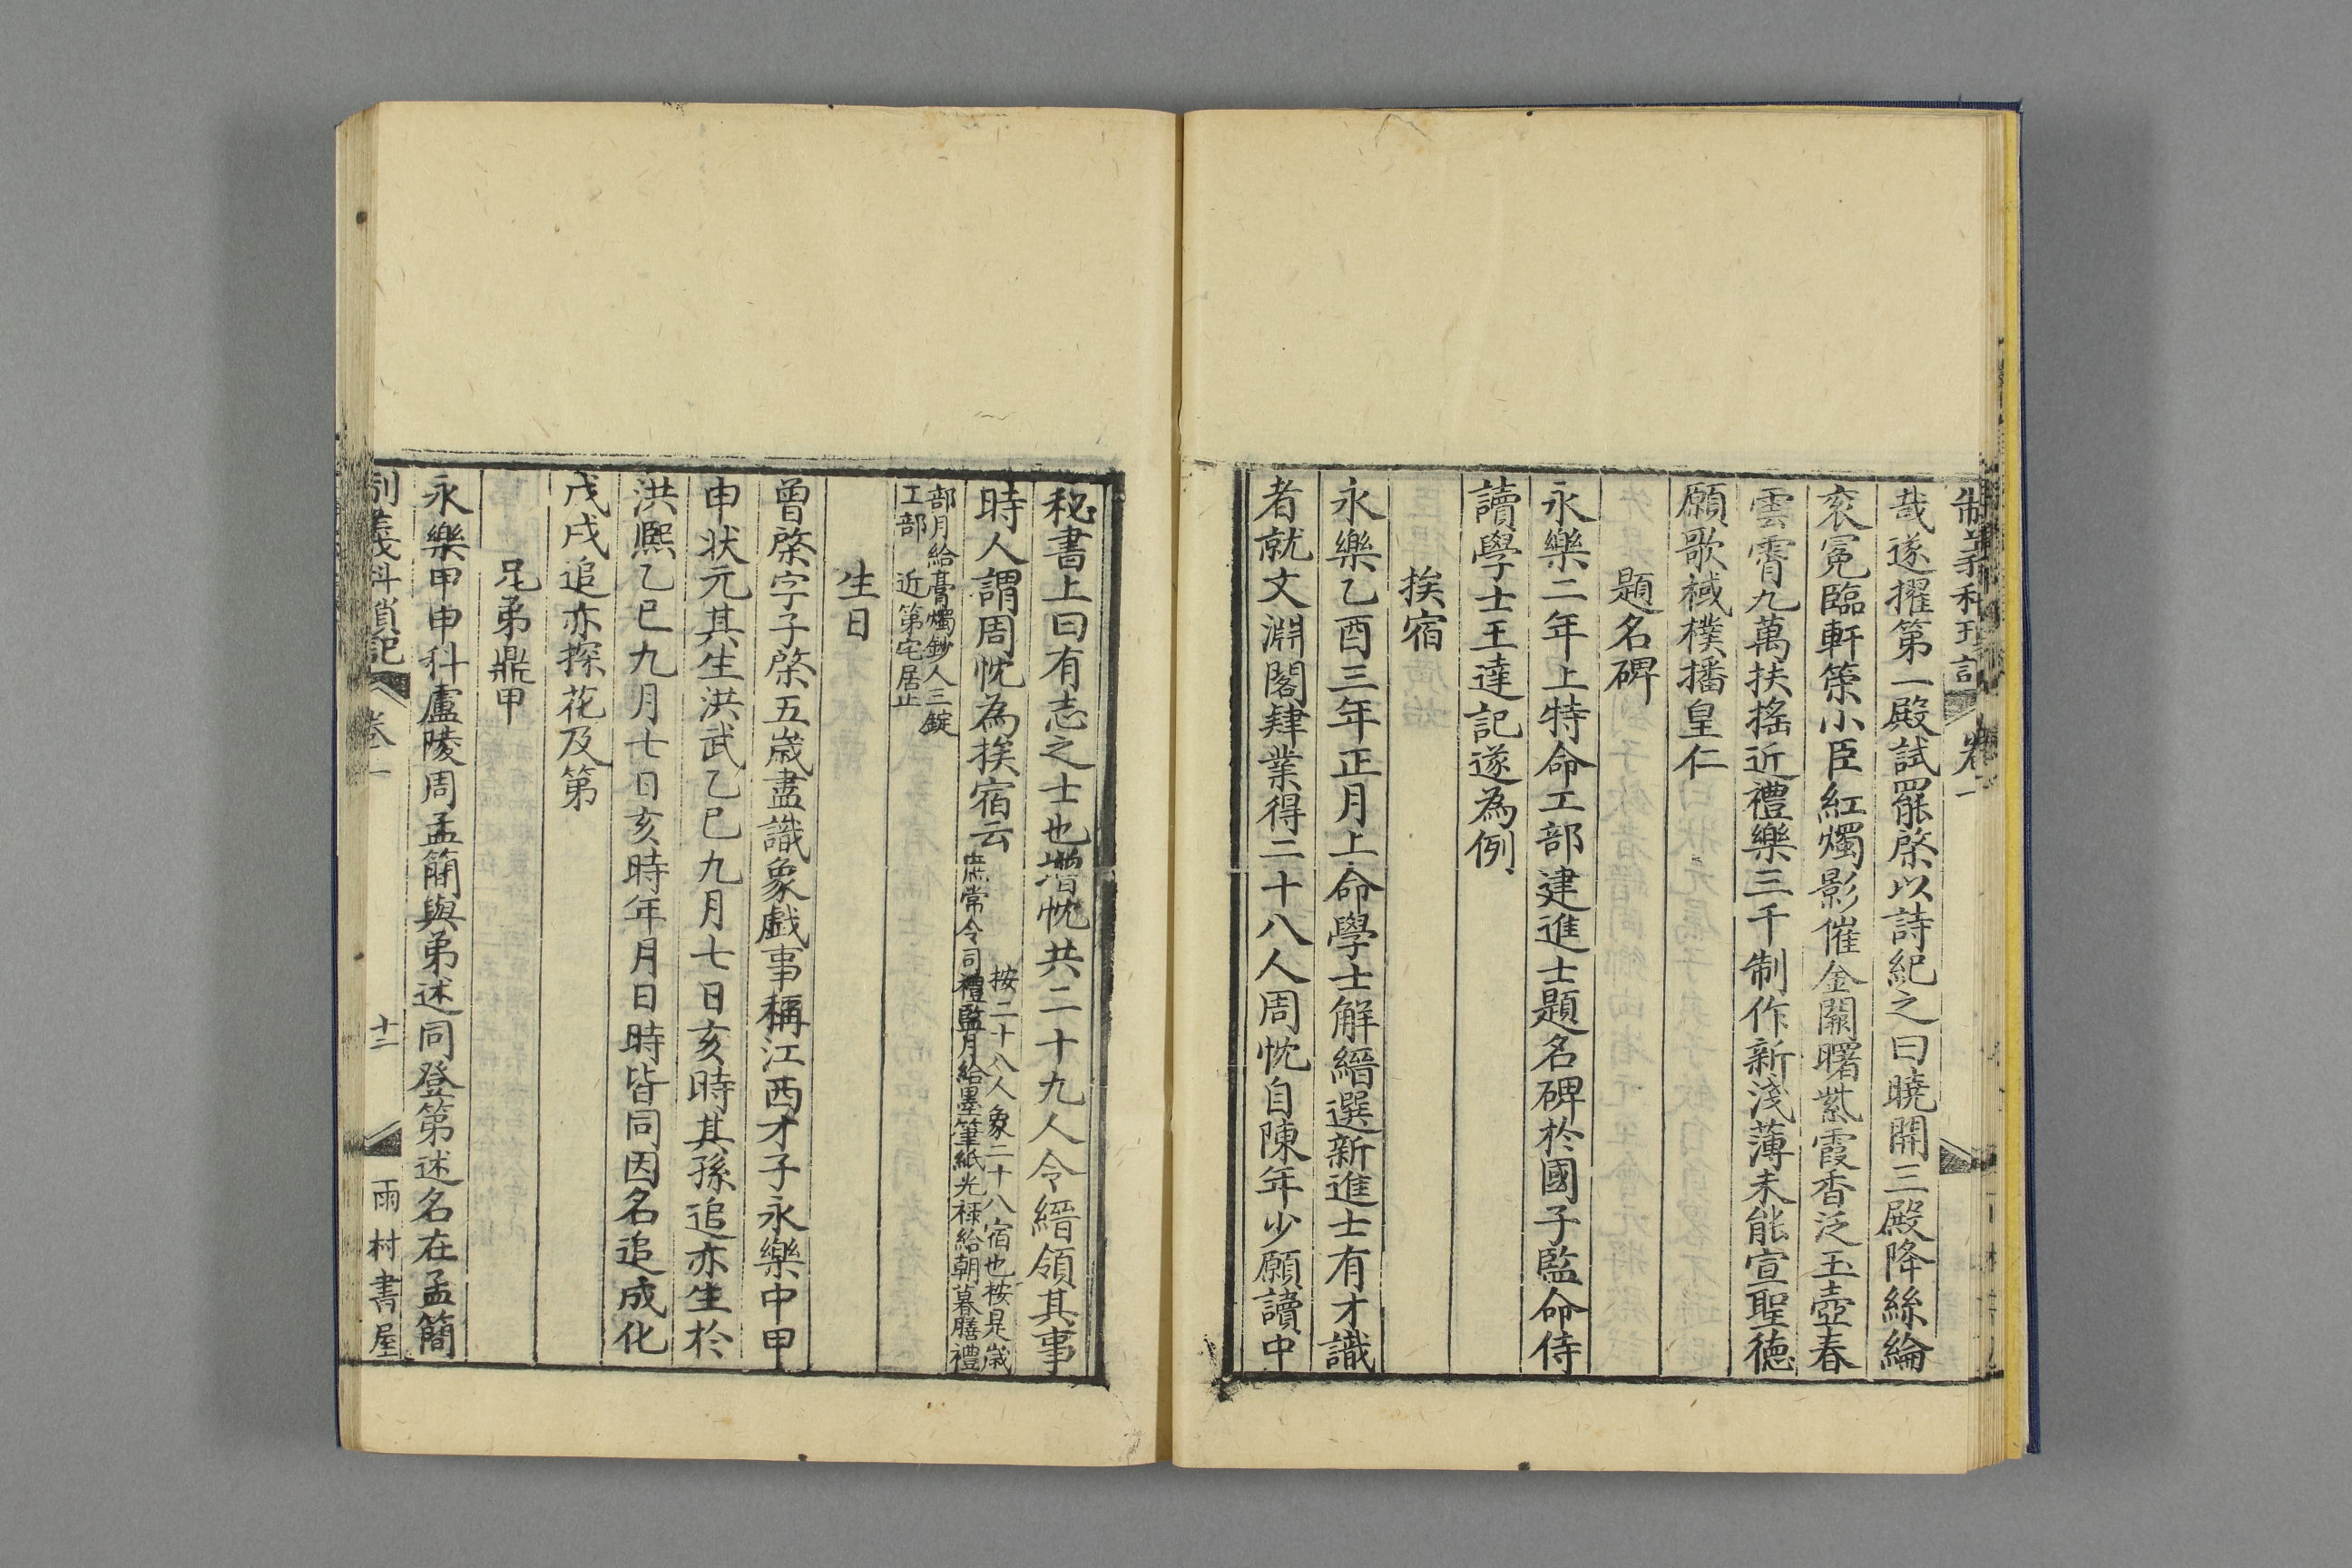 制義科瑣記 卷一
哉遂擢第一殿試罷棨以詩紀之曰曉開三殿降絲綸
衮冕臨軒策小臣紅燭影催金闕曙紫霞香泛玉壺春
雲霄九萬扶搖近禮樂三千制作新淺薄未能宣聖德
願歌棫樸播皇仁
題名碑
永樂二年上特命工部建進士題名碑於國子監命侍
讀學士王達記遂為例
挨宿
永樂乙酉三年正月上命學士解縉選新進士有才識
者就文淵閣肄業得二十八人周忱自陳年少願讀中
秘書上曰有志之士也增忱共二十九人令縉領其事
時人謂周忱為挨宿云
按二十八人象二十八宿也按是歲
庶常令司禮監月給墨筆紙光祿給朝暮膳禮
部月給膏燭鈔人三錠
工部 近第宅居止
生日
曾棨字子棨五歲盡識象戲事稱江西才子永樂中甲
申状元其生洪武乙巳九月七日亥時其孫追亦生於
洪熙乙巳九月七日亥時年月日時皆同因名追成化
戊戌追亦探花及第
兄弟鼎甲
永樂甲申科廬陵周孟簡與弟述同登第述名在孟簡
制義科瑣記 卷一 十二 雨村書屋